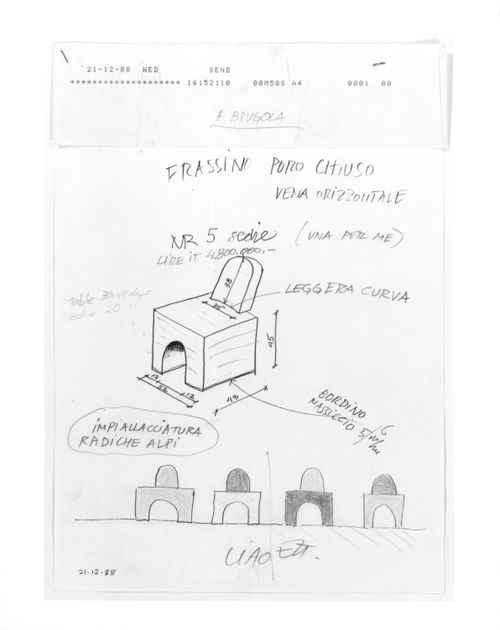 21-12-88 WED SEND
******************** 16:52:10 00M58S A4 0001 00
A BRUGOLA
FRASSINO PORO CHIUSO
VENA ORIZZONTALE
NR 5 sedie (UNA PER ME)
LIRE IT. 4.800.000,-
LEGGERA CURVA
Table 30
sedie 20
38
36
45
12
12
43
BORDINO
MASSICCIO 5/6
m/m
IMPIALLACCIATURA
RADICHE ALPI
CIAO
21-12-88